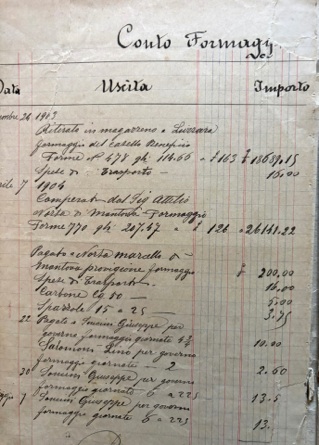 Conto Formaggi
Data Uscita Importo
24 1903
Ritirato in magazzeno a Luzzara
formaggio del Casello Benefizio
Forme N° 478 qli 114.66 a £ 163 £ 18689.15
Spese di Trasporto 16.00
7 1904
Comperato dal Sig Attilio
Norsa di Mantova Formaggio
Forme 770 qli 207.47 a £ 126 26141.22
Pagato a Norsa Marcello di
Mantova provigione formaggio £ 200.00
Spese di Trasporto 16.00
Carbone 5.00
Spazzole 15 a 25 3.75
22 Pagato a Giuseppe per
governo formaggio giornate 10.00
Salomoni Lino per governo
formaggio giornate 2 2.60
30 Giuseppe per governo
formaggio giornate 6 a 225 13.5
7 Giuseppe per governo
formaggio giornate 6 a 225 13.